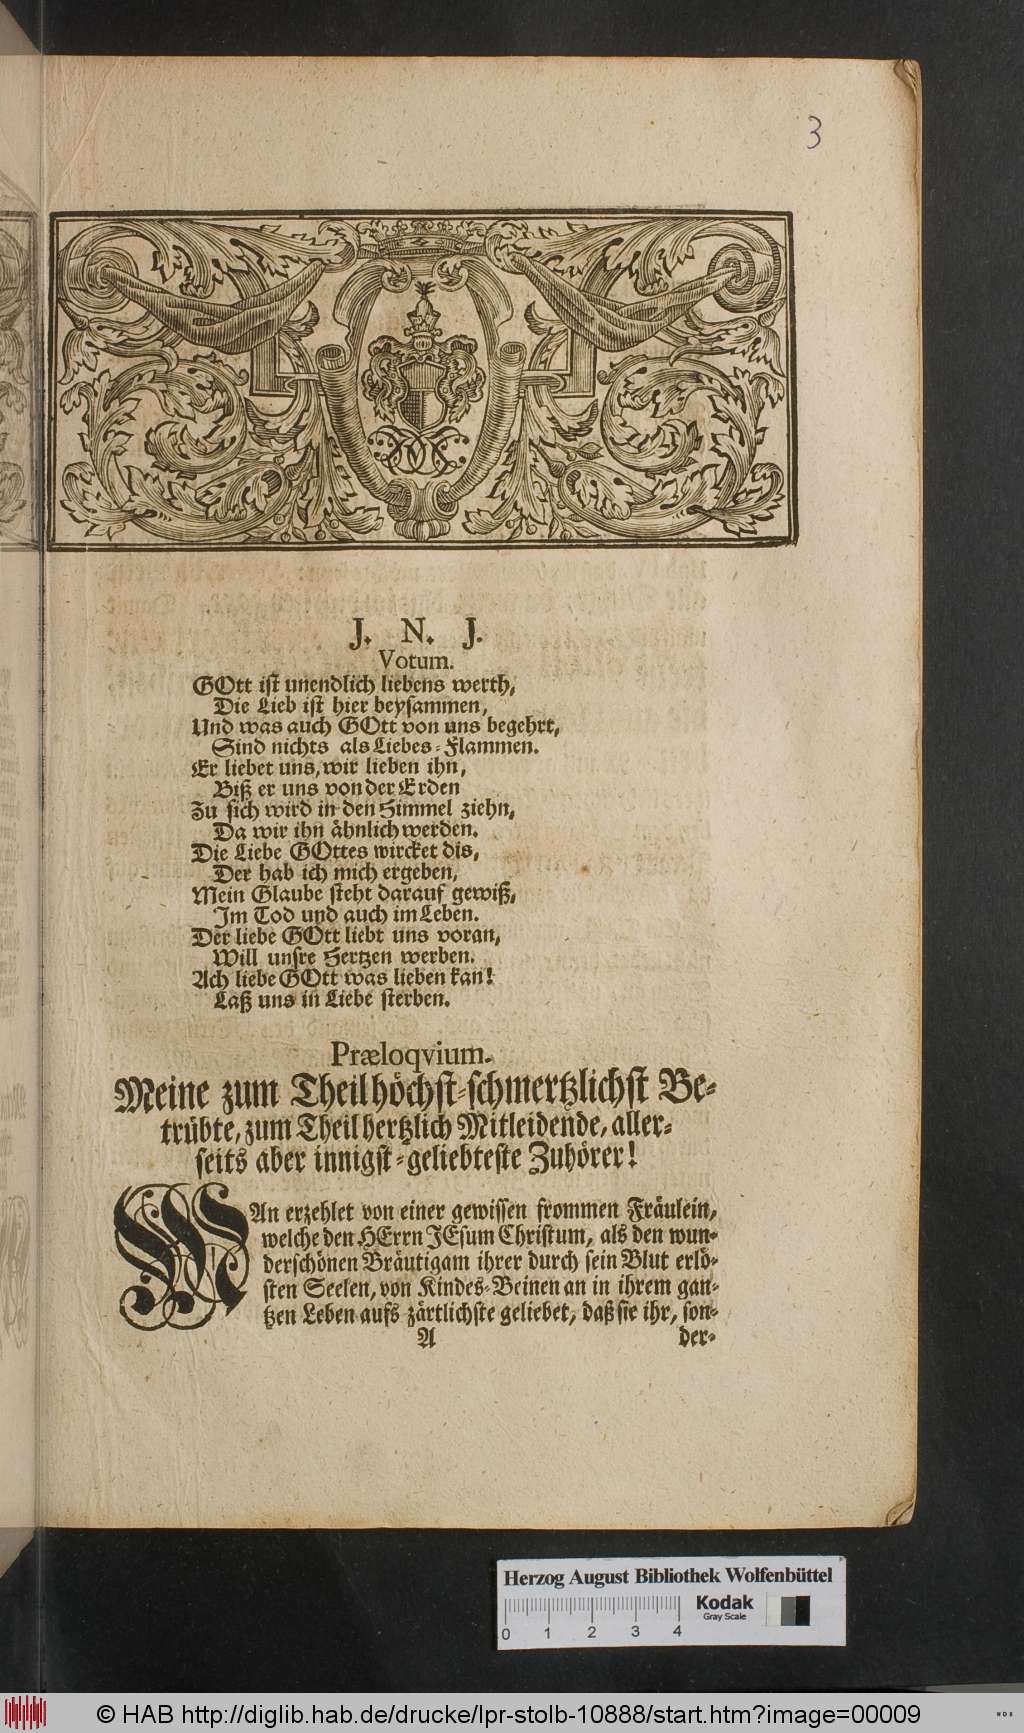 3
J. N. J.
Votum.
GOtt ist unendlich liebens werth,
Die Lieb ist hier beysammen,
Und was auch GOtt von uns begehrt,
Sind nichts als Liebes-Flammen.
Er liebet uns, wir lieben ihn,
Biß er uns von der Erden
Zu sich wird in den Himmel ziehn,
Da wir ihn ähnlich werden.
Die Liebe GOttes wircket dis,
Der hab ich mich ergeben,
Mein Glaube steht darauf gewiß,
Im Tod und auch im Leben.
Der liebe GOtt liebt uns voran,
Will unsre Hertzen werben.
Ach liebe GOtt was lieben kan!
Laß uns in Liebe sterben.
Præloqvium.
Meine zum Theil höchst-schmertzlichst Be-
trübte, zum Theil hertzlich Mitleidende, aller-
seits aber innigst-geliebteste Zuhörer!
MAn erzehlet von einer gewissen frommen Fräulein,
welche den HErrn JEsum Christum, als den wun-
derschönen Bräutigam ihrer durch sein Blut erlö-
sten Seelen, von Kindes-Beinen an in ihrem gan-
tzen Leben aufs zärtlichste geliebet, daß sie ihr, son-
A der-
Herzog August Bibliothek Wolfenbüttel
Kodak
Gray Scale
0 1 2 3 4
© HAB http://diglib.hab.de/drucke/lpr-stolb-10888/start.htm?image=00009